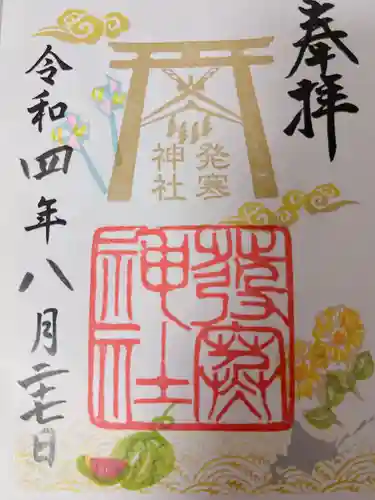 奉拝
発寒
神社
發寒
神社
令和四年八月二十七日